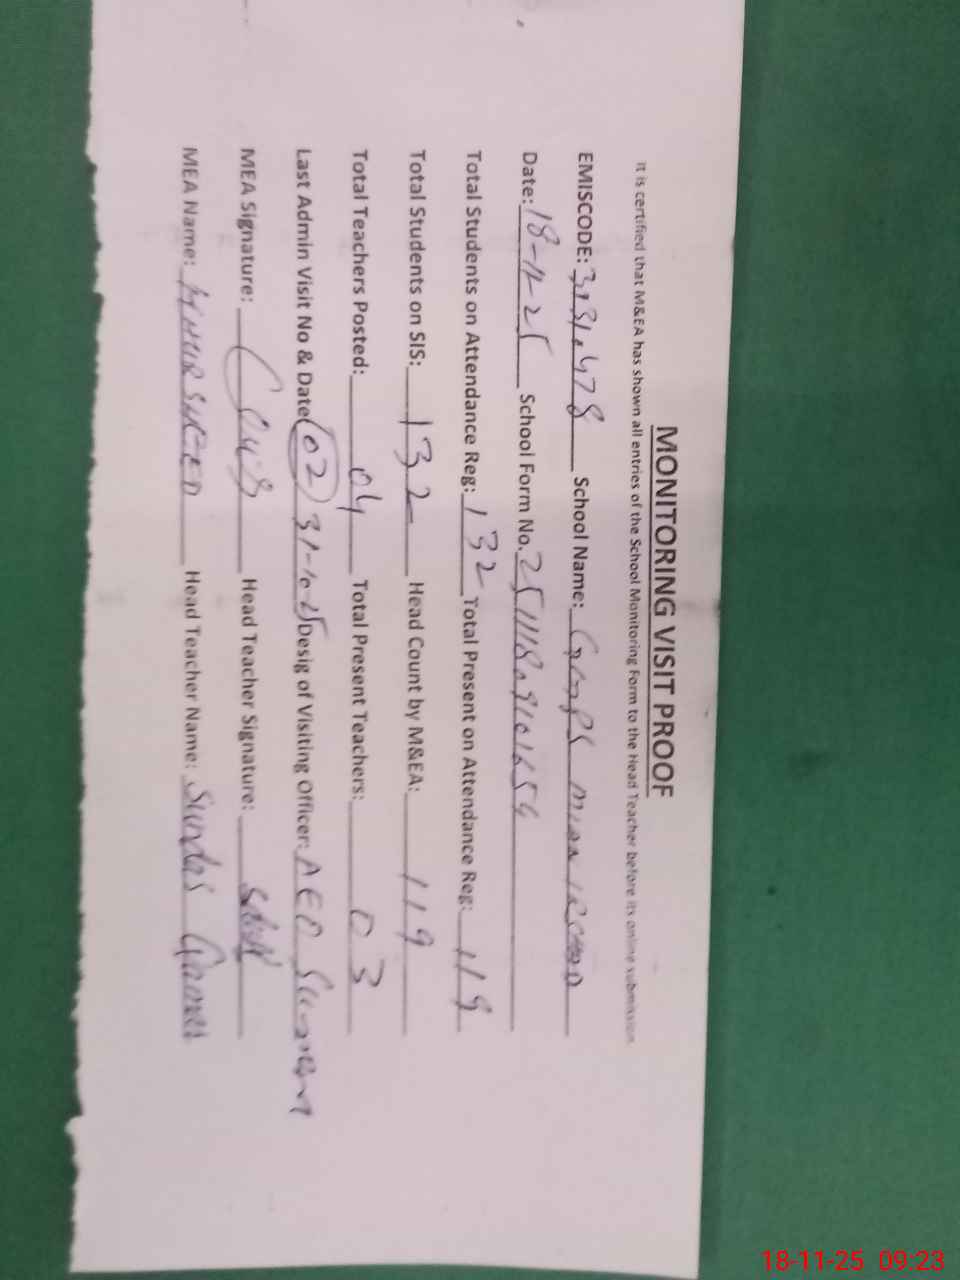 MONITORING VISIT PROOF
It is certified that M&EA has shown all entries of the School Monitoring Form to the Head Teacher before its online submission.
EMISCODE: School Name:
Date: 18-11-25 School Form No.
Total Students on Attendance Reg: 132 Total Present on Attendance Reg: 119
Total Students on SIS: 132 Head Count by M&EA: 119
Total Teachers Posted: 04 Total Present Teachers: 03
Last Admin Visit No & Date 02 31-10-25 Desig of Visiting Officer: AEO
MEA Signature: Head Teacher Signature:
MEA Name: Head Teacher Name: Sundas
18-11-25 09:23